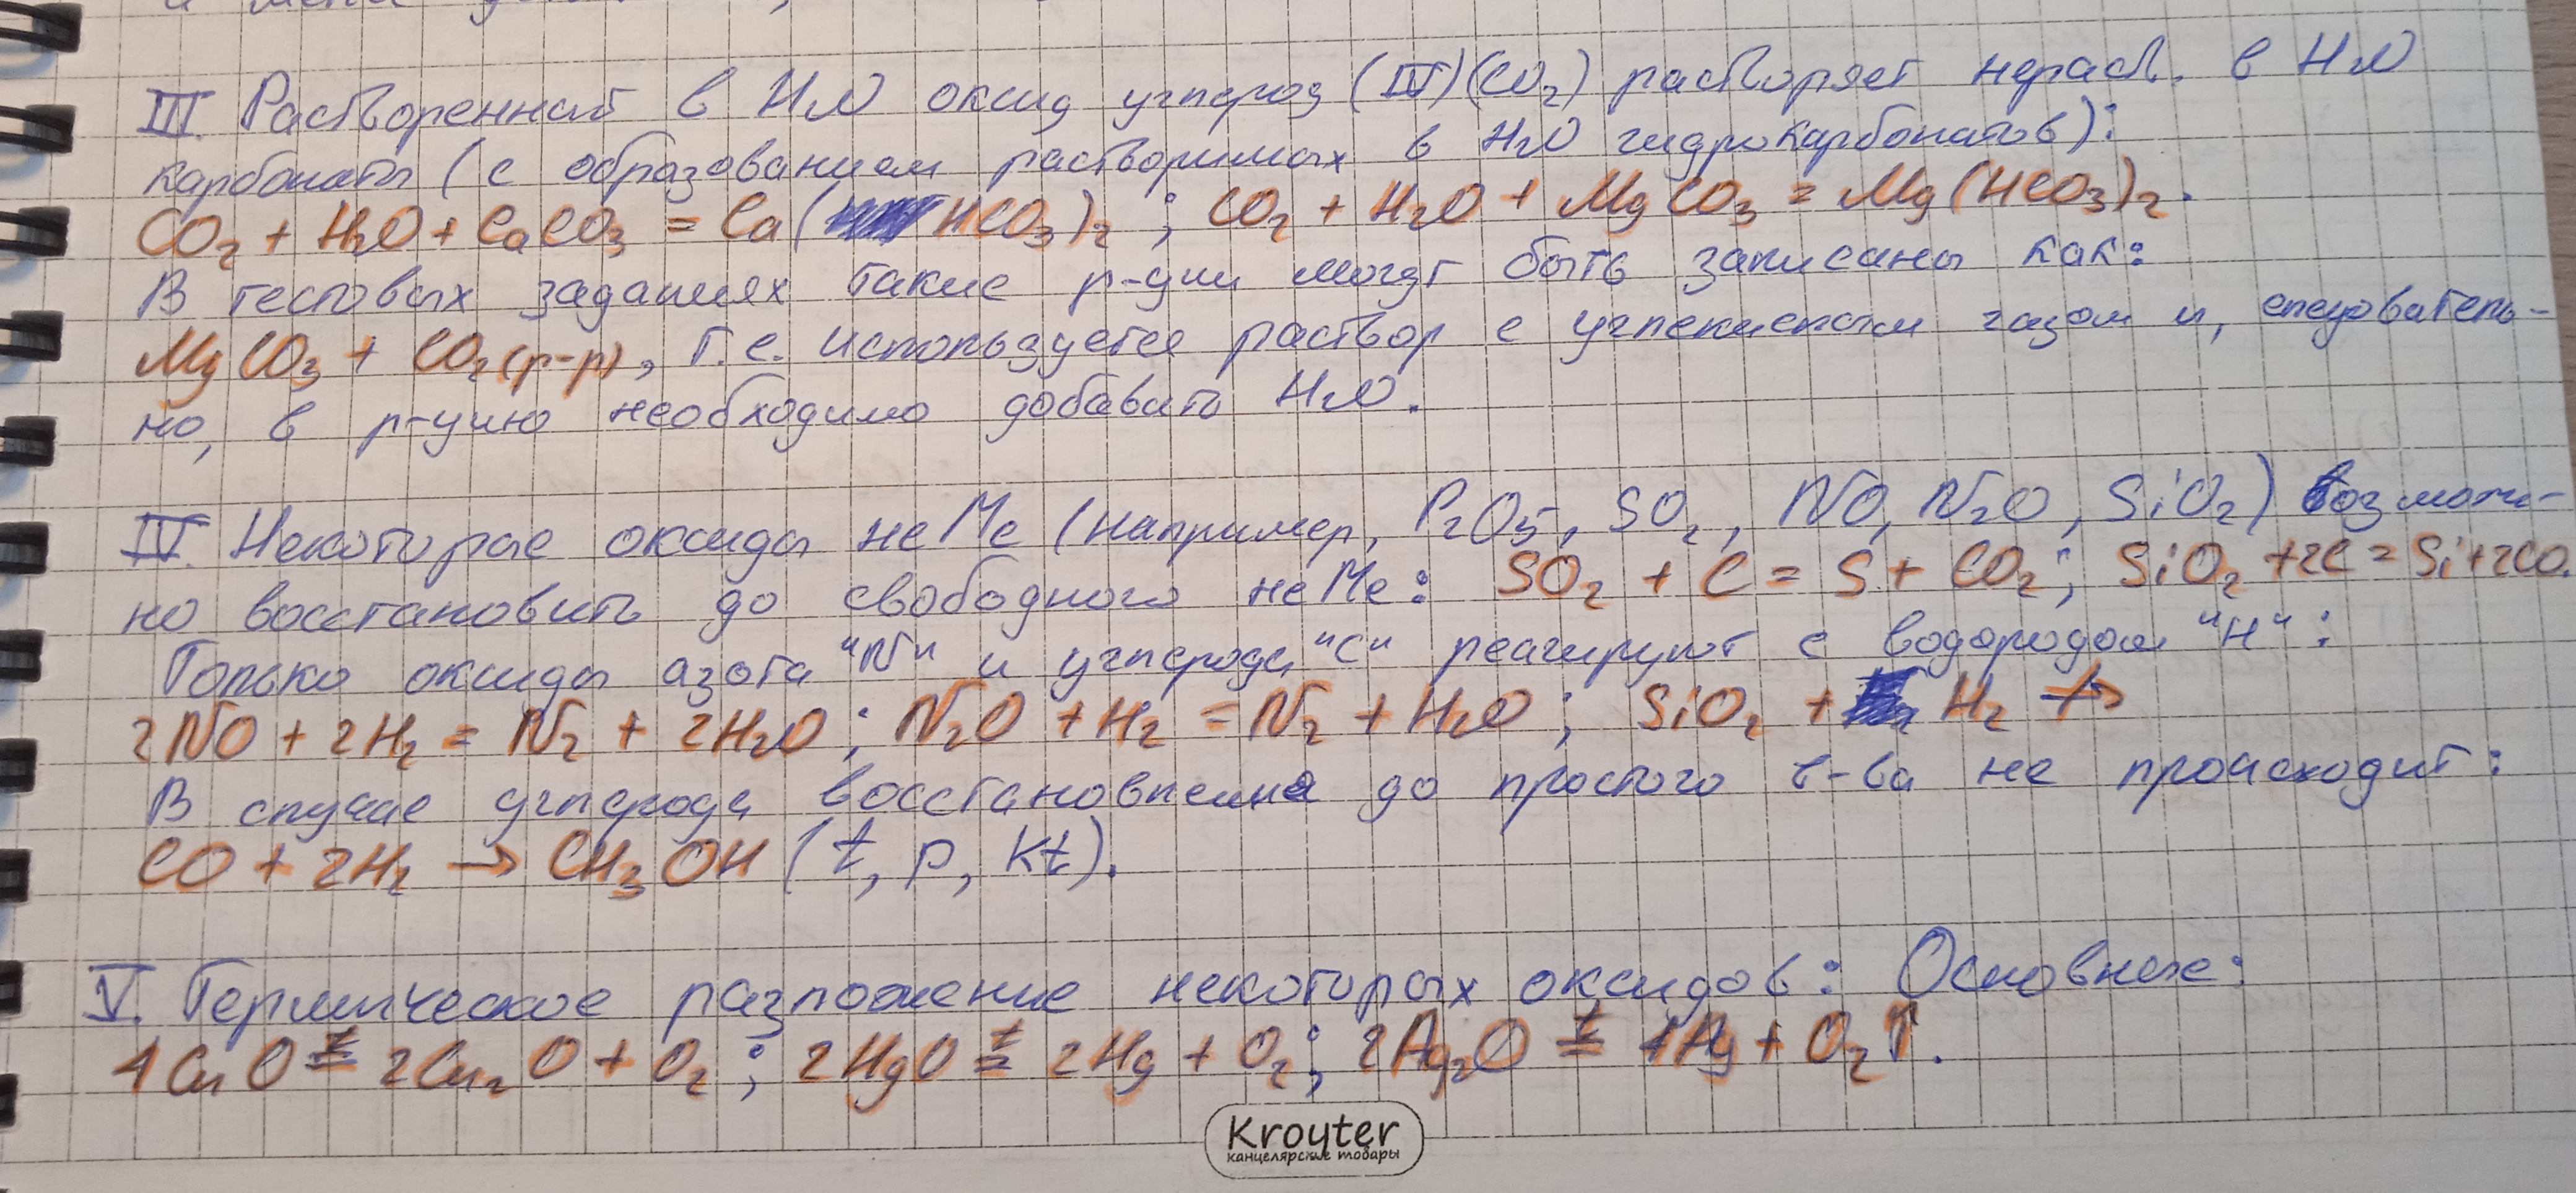 III. Растворенный в H₂O оксид углерод (IV)(CO₂) растворяет нераств. в H₂O
карбонаты (с образованием растворимых в H₂O гидрокарбонатов):
CO₂ + H₂O + CaCO₃ = Ca(HCO₃)₂ ; CO₂ + H₂O + MgCO₃ = Mg(HCO₃)₂.
В тестовых заданиях такие р-ции могут быть записаны как:
MgCO₃ + CO₂(р-р), т.е. используется раствор с углекислым газом и, следователь-
но, в р-цию необходимо добавить H₂O.
IV. Некоторые оксиды неМе (например, P₂O₅, SO₂, NO, N₂O, SiO₂) возмож-
но восстановить до свободного неМе: SO₂ + C = S + CO₂ ; SiO₂ + 2C = Si + 2CO.
Только оксиды азота "N" и углерода "C" реагируют с водородом "H" :
2NO + 2H₂ = N₂ + 2H₂O ; N₂O + H₂ = N₂ + H₂O ; SiO₂ + H₂ ↛
В случае углерода восстановление до простого в-ва не происходит:
CO + 2H₂ → CH₃OH (t, p, kt).
V. Термическое разложение некоторых оксидов: Основные:
4CuO =ᵗ 2Cu₂O + O₂ ; 2HgO =ᵗ 2Hg + O₂ ; 2Ag₂O =ᵗ 4Ag + O₂↑.
Kroyter
канцелярские товары